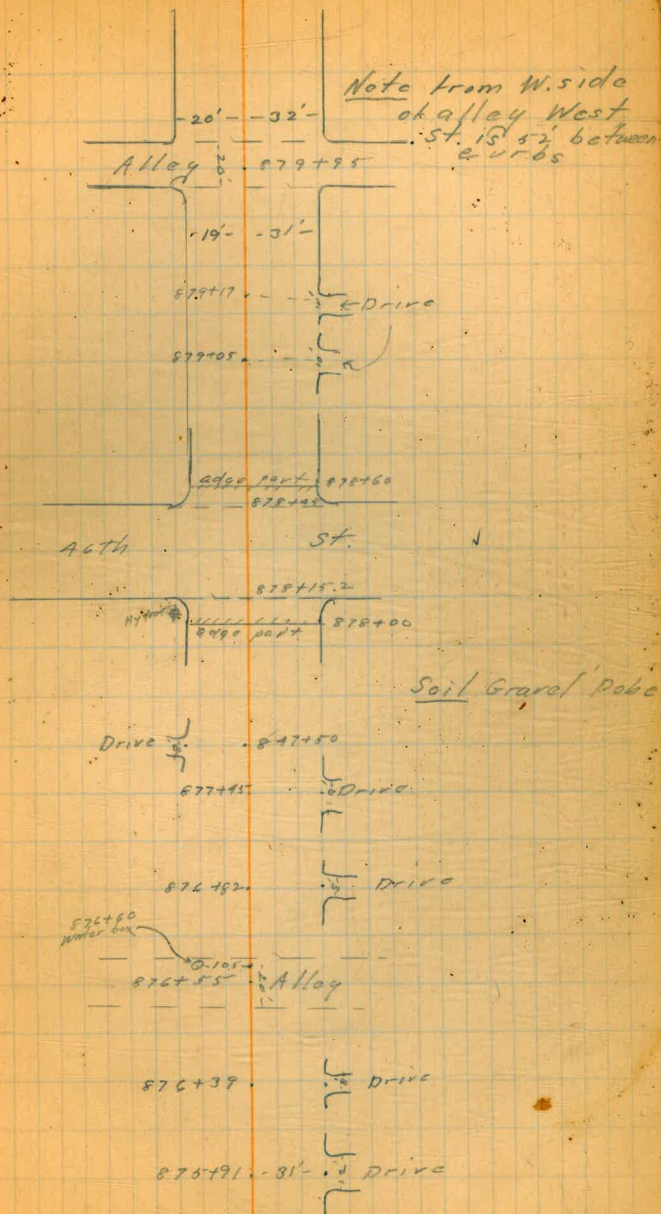 Note from W. side
of alley West
St. is 52' between
curbs
-20'- -32'-
Alley 20' 879+95
-19'- -31'-
879+17 Drive
879+05
edge part 878+60
878+45
46th St.
878+15.2
Hydrant
edge part 878+00
Soil Gravel Dobe
Drive 847+50
677+45 Drive
876+82 Drive
876+60
Water box
10.5
876+55 20' Alley
876+39 Drive
875+91 -31'- 12' Drive